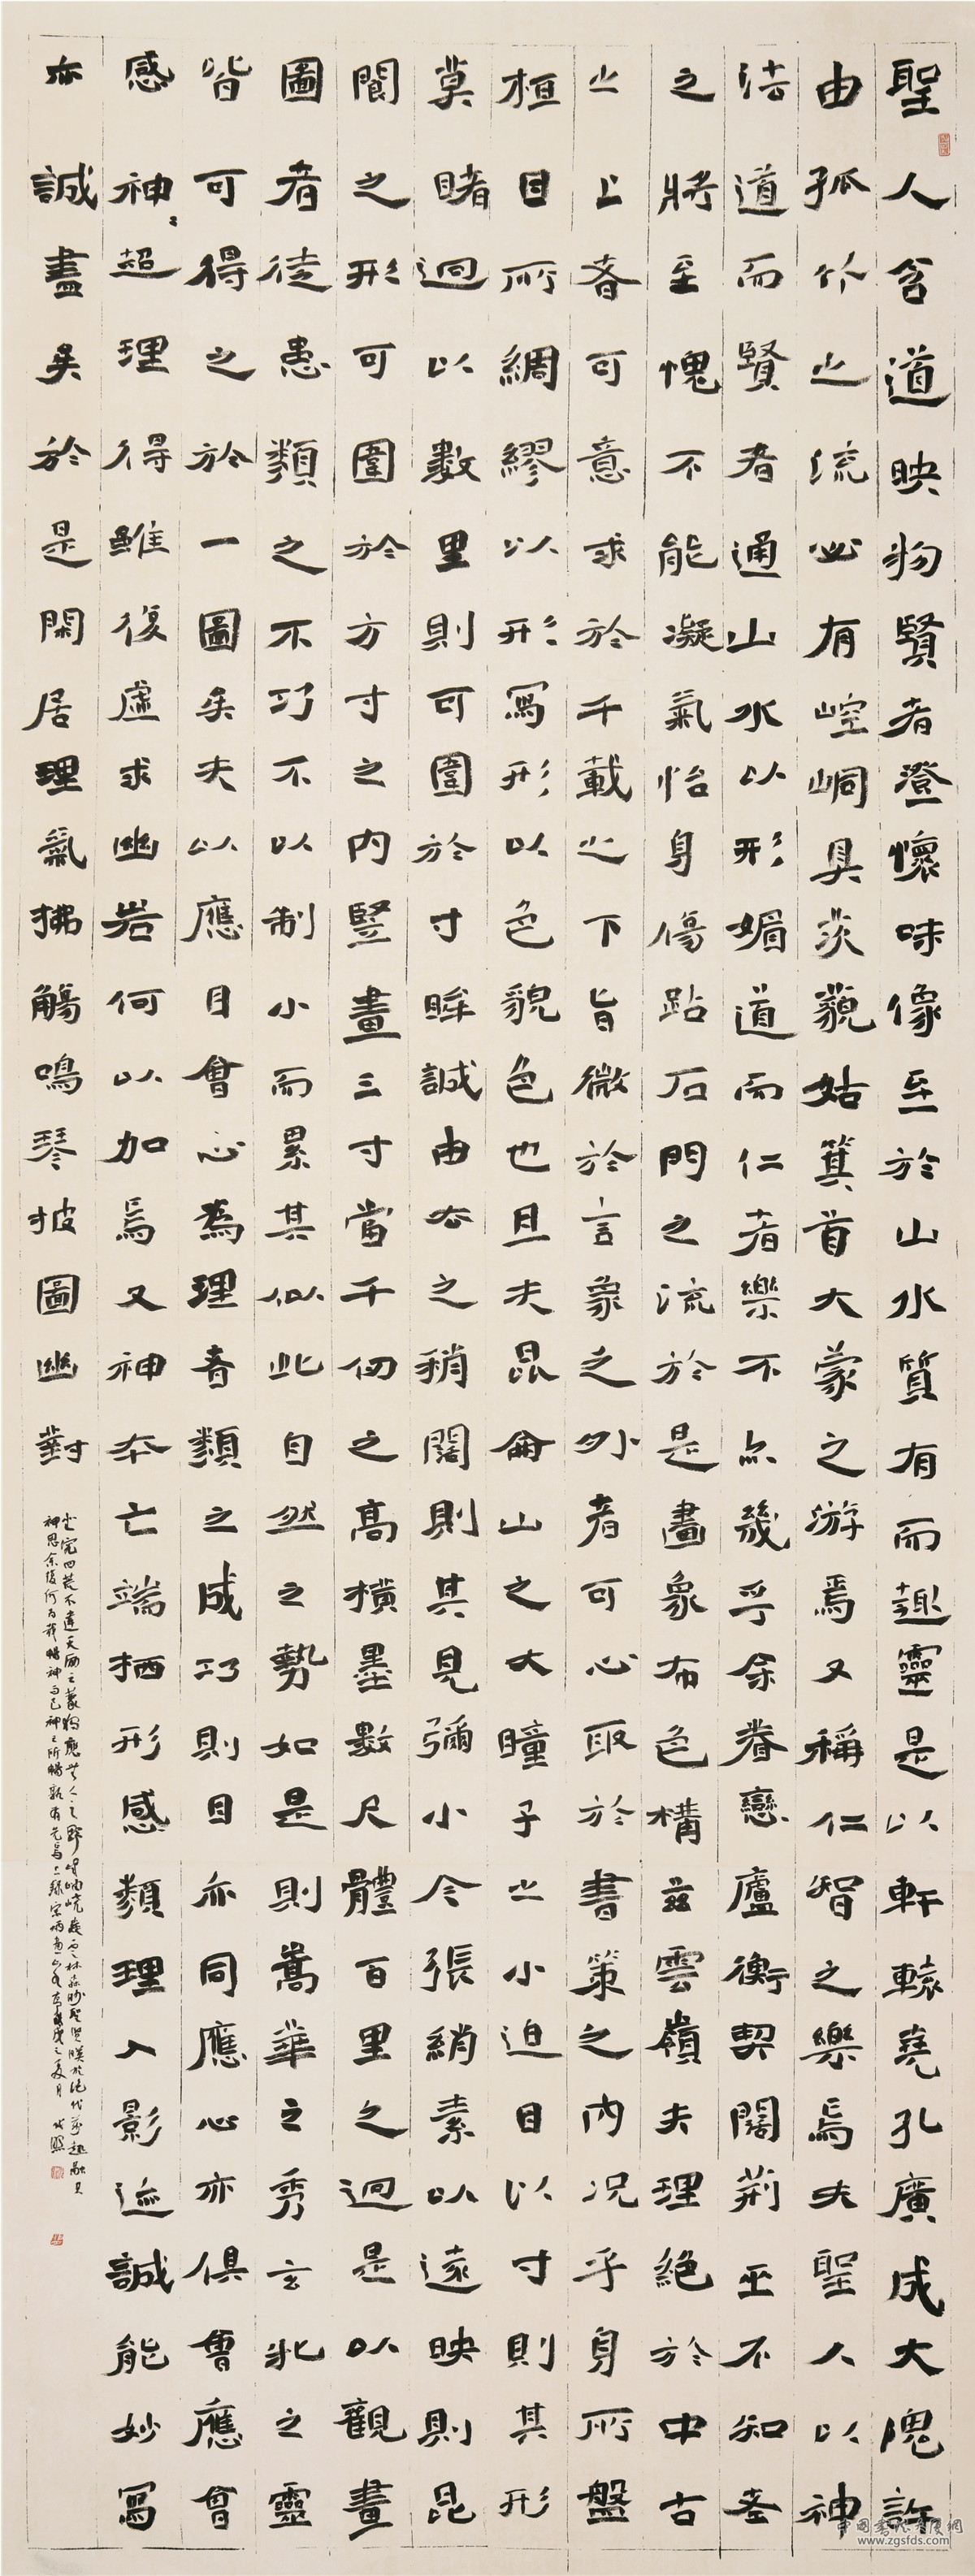 聖人含道映物賢者澄懷味像至於山水質有而趣靈是以軒轅堯孔廣成大隗許
由孤竹之流必有崆峒具茨藐姑箕首大蒙之游焉又稱仁智之樂焉夫聖人以神
法道而賢者通山水以形媚道而仁者樂不亦幾乎余眷戀廬衡契闊荊巫不知老
之將至愧不能凝氣怡身傷跕石門之流於是畫象布色構茲雲嶺夫理絕於中古
之上者可意求於千載之下旨微於言象之外者可心取於書策之內況乎身所盤
桓目所綢繆以形寫形以色貌色也且夫昆侖山之大瞳子之小迫目以寸則其形
莫睹迥以數里則可圍於寸眸誠由去之稍闊則其見彌小今張綃素以遠映則昆
閬之形可圍於方寸之內豎畫三寸當千仞之高橫墨數尺體百里之迥是以觀畫
圖者徒患類之不巧不以制小而累其似此自然之勢如是則嵩華之秀玄牝之靈
皆可得之於一圖矣夫以應目會心為理者類之成巧則目亦同應心亦俱會應會
感神〻超理得雖復虛求幽岩何以加焉又神本亡端栖形感類理入影迹誠能妙寫
亦誠盡矣於是閑居理氣拂觴鳴琴披圖幽對
坐究四荒不違天勵之藂獨應無人之野峰岫嶢嶷雲林森眇聖賢暎於絕代萬趣融其
神思余復何為哉暢神而已神之所暢孰有先焉上錄宗炳畫山水序之夏月
www.zgsfds.com